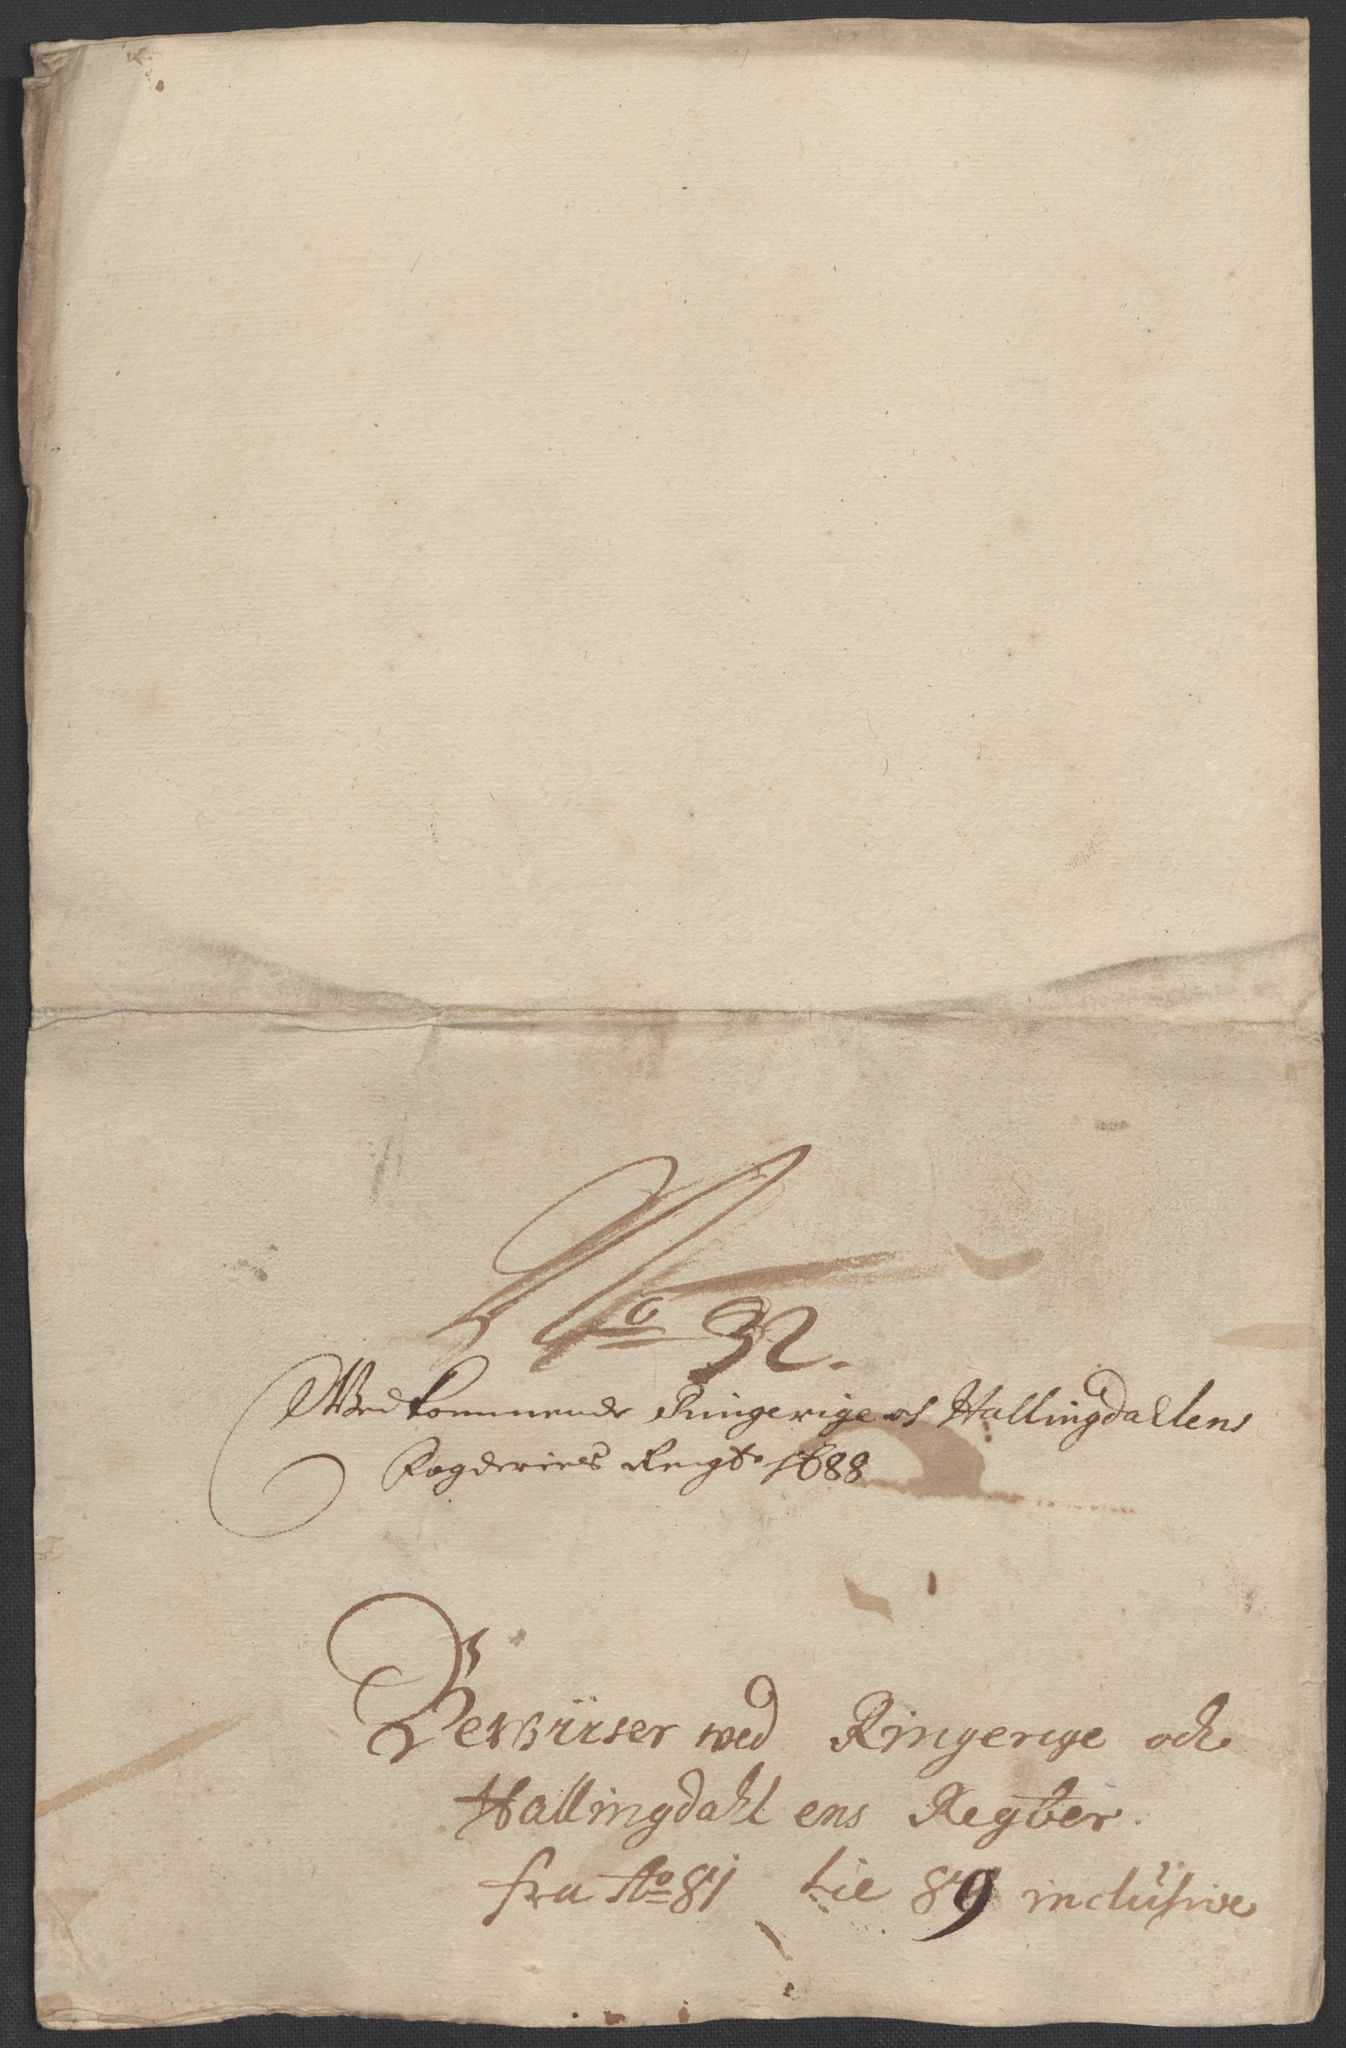 No 32.
Wedkommende Ringerige och Hallingdahlens
Fogderies Regt: 1688
Bewiiser wed Ringerige och
Hallingdahl ens Regter.
fra Ao 81 tie 89 inclusive